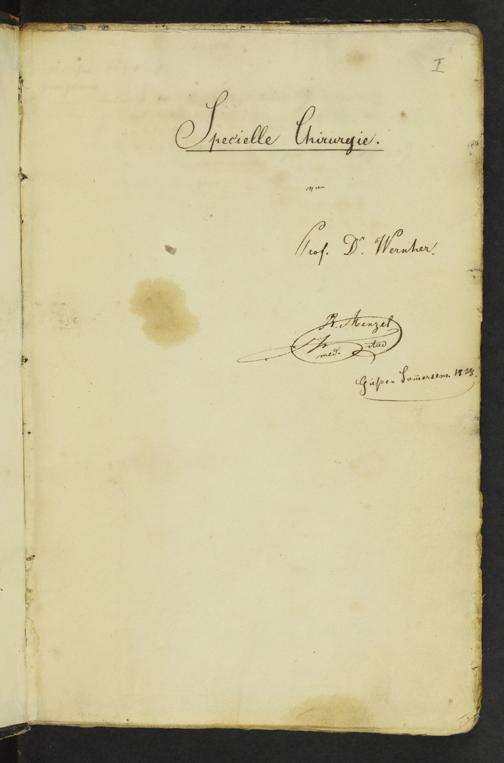 I
Specielle Chirurgie.
von
Prof. Dr. Wernher.
R. Menzel
stud
med.
Gießen Somersem.